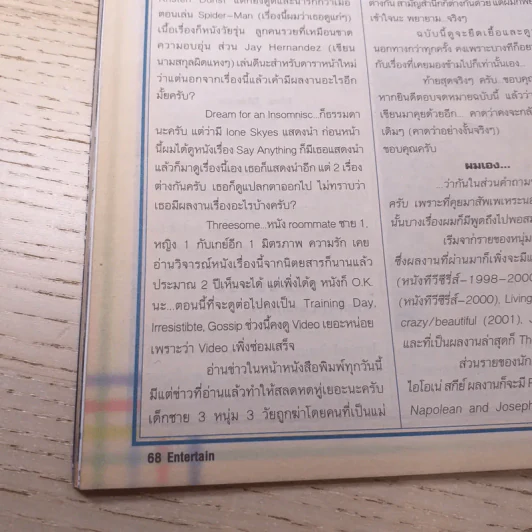 ตอนเล่น Spider-Man (เรื่องนี้ผมว่าเธอดูแก่ๆ)
เนื้อเรื่องก็หนังวัยรุ่น ลูกคนรวยที่เหมือนขาด
ความอบอุ่น ส่วน Jay Hernandez (เขียน
นามสกุลผิดแหงๆ) เล่นดีนะสำหรับดาราหน้าใหม่
ว่าแต่นอกจากเรื่องนี้แล้วเค้ามีผลงานอะไรอีก
มั้ยครับ?
Dream for an Insomnisc..ก็ธรรมดา
นะครับ แต่ว่ามี Ione Skyes แสดงนำ ก่อนหน้า
นี้ผมได้ดูหนังเรื่อง Say Anything ก็มีเธอแสดงนำ
แล้วก็มาดูเรื่องนี้เอง เธอก็แสดงนำอีก แต่ 2 เรื่อง
ต่างกันครับ เธอก็ดูแปลกตาออกไป ไม่ทราบว่า
เธอมีผลงานเรื่องอะไรบ้างครับ?
Threesome...หนัง roommate ชาย 1,
หญิง 1 กับเกย์อีก 1 มิตรภาพ ความรัก เคย
อ่านวิจารณ์หนังเรื่องนี้จากนิตยสารก็นานแล้ว
ประมาณ 2 ปีเห็นจะได้ แต่เพิ่งได้ดู หนังก็ O.K.
นะ...ตอนนี้ที่จะดูต่อไปคงเป็น Training Day,
Irresistibte, Gossip ช่วงนี้คงดู Video เยอะหน่อย
เพราะว่า Video เพิ่งซ่อมเสร็จ
อ่านข่าวในหน้าหนังสือพิมพ์ทุกวันนี้
มีแต่ข่าวที่อ่านแล้วทำให้สลดหดหู่เยอะนะครับ
เด็กชาย 3 หนุ่ม 3 วัยถูกฆ่าโดยคนที่เป็นแม่
68 Entertain
เข้าใจนะ พยายาม..จริงๆ
ฉบับนี้ดูจะยืดเยื้อและดู
นอกทางกว่าทุกครั้ง
กับเรื่องที่เคยมองข้ามไปก็เท่านั้นเอง..
ท้ายสุดจริงๆ ครับ..ขอบคุณ
หากยินดีตอบจดหมายฉบับนี้ แล้วว่า
เขียนมาคุยด้วยอีก... คาดว่าคงจะกลั
เดิมๆ (คาดว่าอย่างงั้นจริงๆ)
ขอบคุณครับ
ผมเอง...
..ว่ากันในส่วนคำถาม
ครับ เพราะที่คุยมาสัพเพเหระ
นั้นบางเรื่องผมก็มีพูดถึงไปพอสม
เริ่มจากรายของหนุ่ม
ซึ่งผลงานที่ผ่านมาก็เพิ่งจะมีแ
(หนังทีวีซีรี่ส์-1998-2000
(หนังทีวีซีรี่ส์-2000), Living
crazy/beautiful (2001),
และที่เป็นผลงานล่าสุดก็ Th
ส่วนรายของนัก
ไอโอเน่ สกีย์ ผลงานก็จะมี
Napolean and Joseph